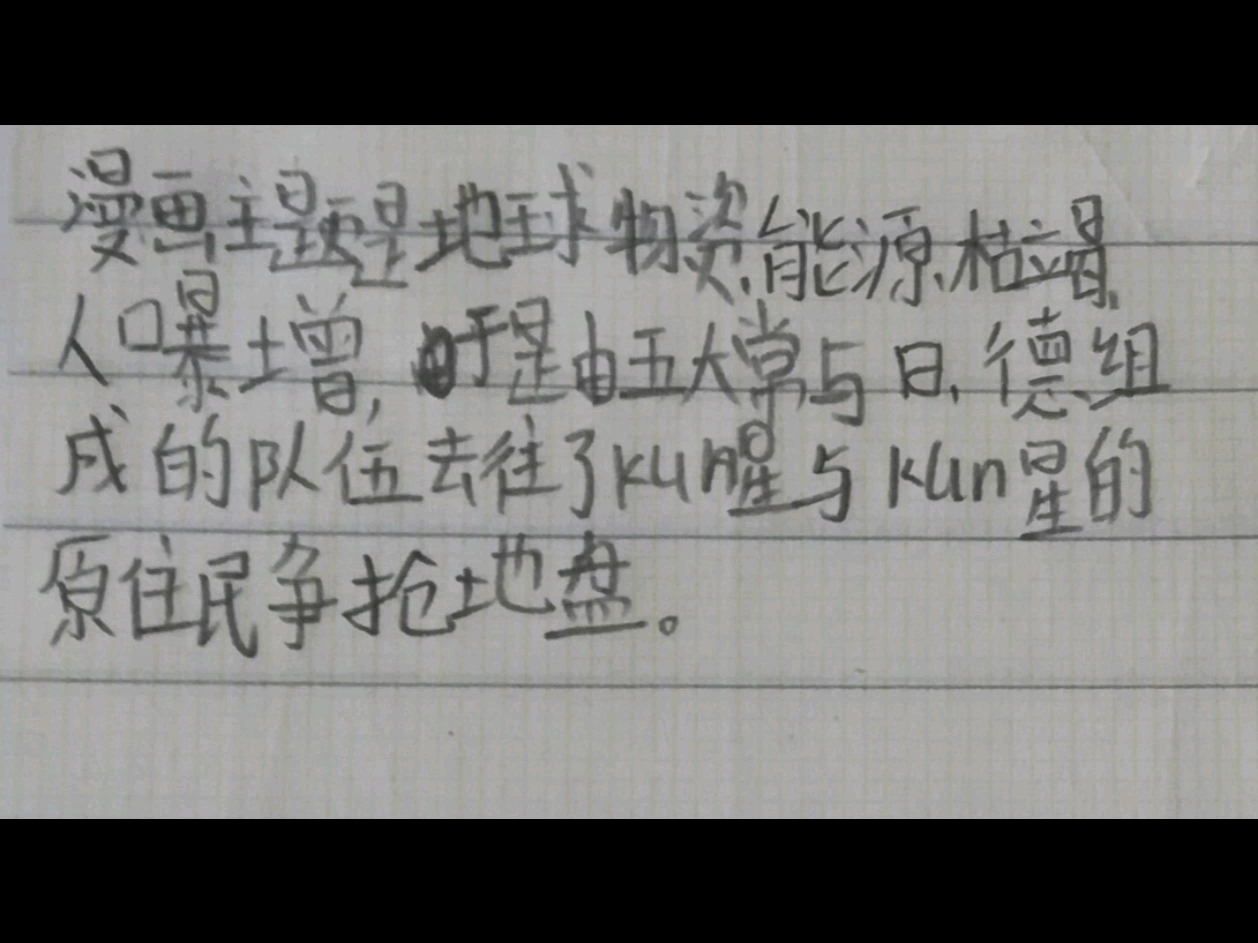 漫画主题是地球物资.能源.枯竭.
人口暴增,于是由五大常与日.德.组
成的队伍去往了kun星与kun星的
原住民争抢地盘。